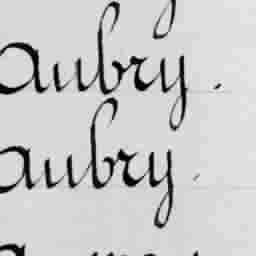 Aubry.
Aubry.